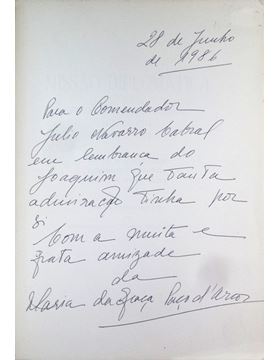 28 de Junho
de 1986
Para o Comendador
Julio Navarro Cabral
em lembrança do
Joaquim que tanta
admiração tinha por
si
Com a muita e
grata amizade
da
Maria da Graça Paço d'Arcos